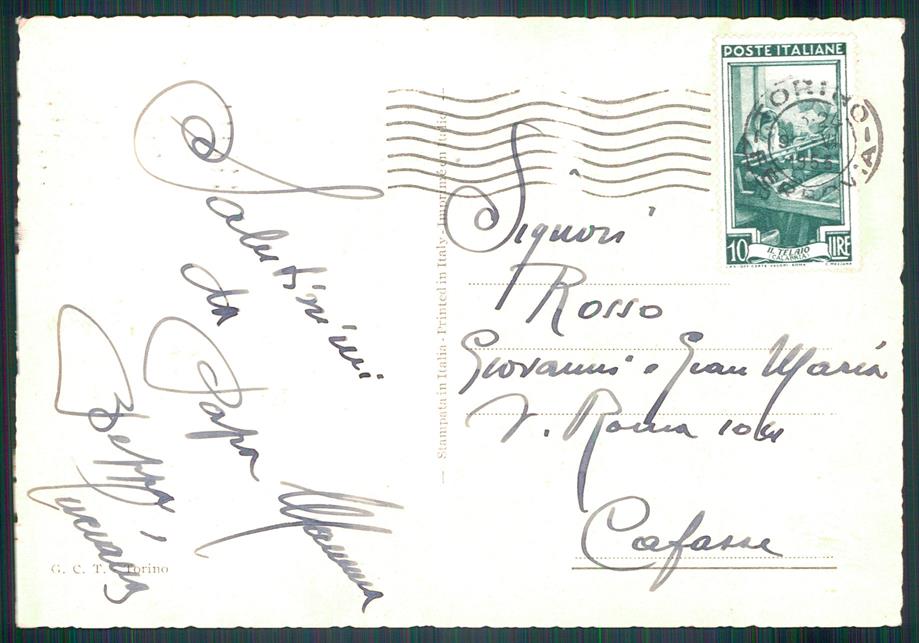 Salutissimi
da Papa
Mamma
Beppa
Luciana
G. C. T. - Torino
Stampata in Italia - Printed in Italy - Imprimé en Italie
POSTE ITALIANE
10 LIRE
IL TELAIO
(CALABRIA)
TORINO
FERROVIA
1953
Signori
Rosso
Giovanni e Gian Maria
V. Roma 104
Cafasse